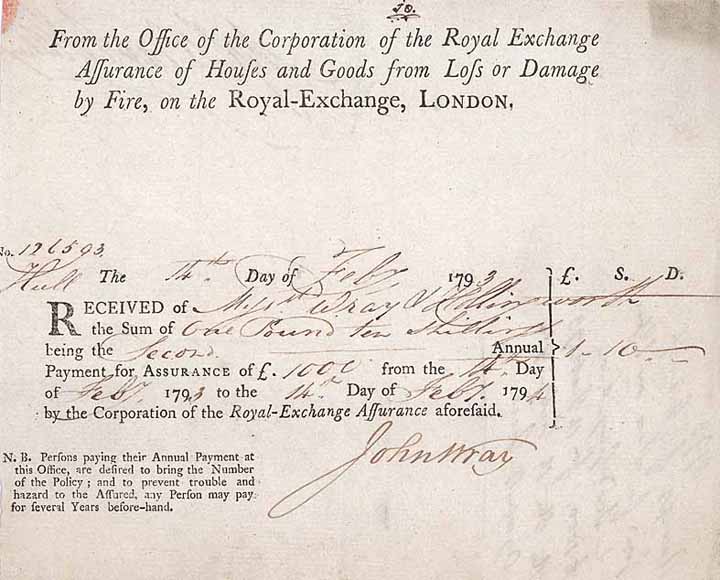 10.
From the Office of the Corporation of the Royal Exchange
Aſſurance of Houſes and Goods from Loſs or Damage
by Fire, on the Royal-Exchange, LONDON.
No. 126593.
Hull The 14th. Day of Feby 1793 £. S. D.
RECEIVED of Meſsrs Wray & Hollingsworth
the Sum of One Pound ten Shillings
being the Second. Annual 1-10-
Payment for ASSURANCE of £. 1000 from the 14th Day
of Feby. 1793 to the 14th Day of Feby. 1794
by the Corporation of the Royal-Exchange Aſſurance aforeſaid.
John Wray
N. B. Perſons paying their Annual Payment at
this Office, are deſired to bring the Number
of the Policy ; and to prevent trouble and
hazard to the Aſſured, any Perſon may pay
for ſeveral Years before-hand.